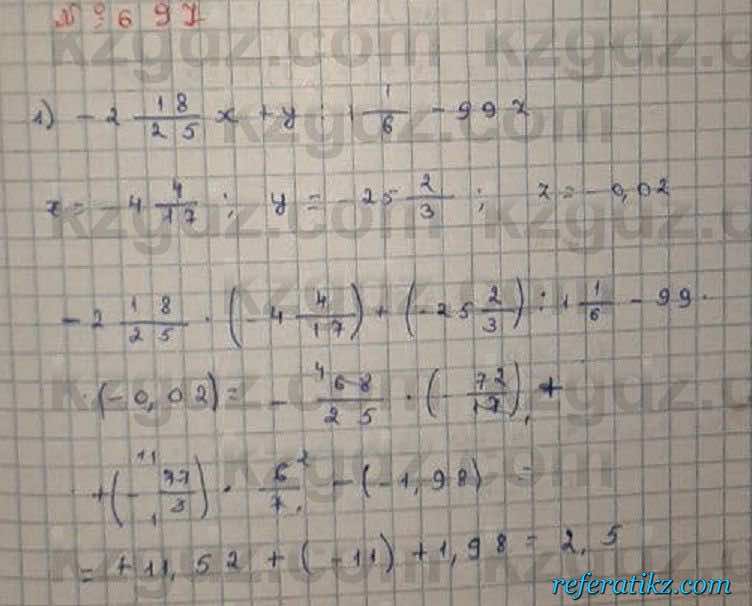 № 697
1) -2 18/25 x + y : 1 1/6 - 99z
x = -4 4/17 ; y = -25 2/3 ; z = -0,02
-2 18/25 · (-4 4/17) + (-25 2/3) : 1 1/6 - 99 ·
· (-0,02) = - 68/25 · (- 72/17) +
+ (- 77/3) · 6/7 - (-1,98) =
= +11,52 + (-11) + 1,98 = 2,5
kzgdz.com
referatikz.com